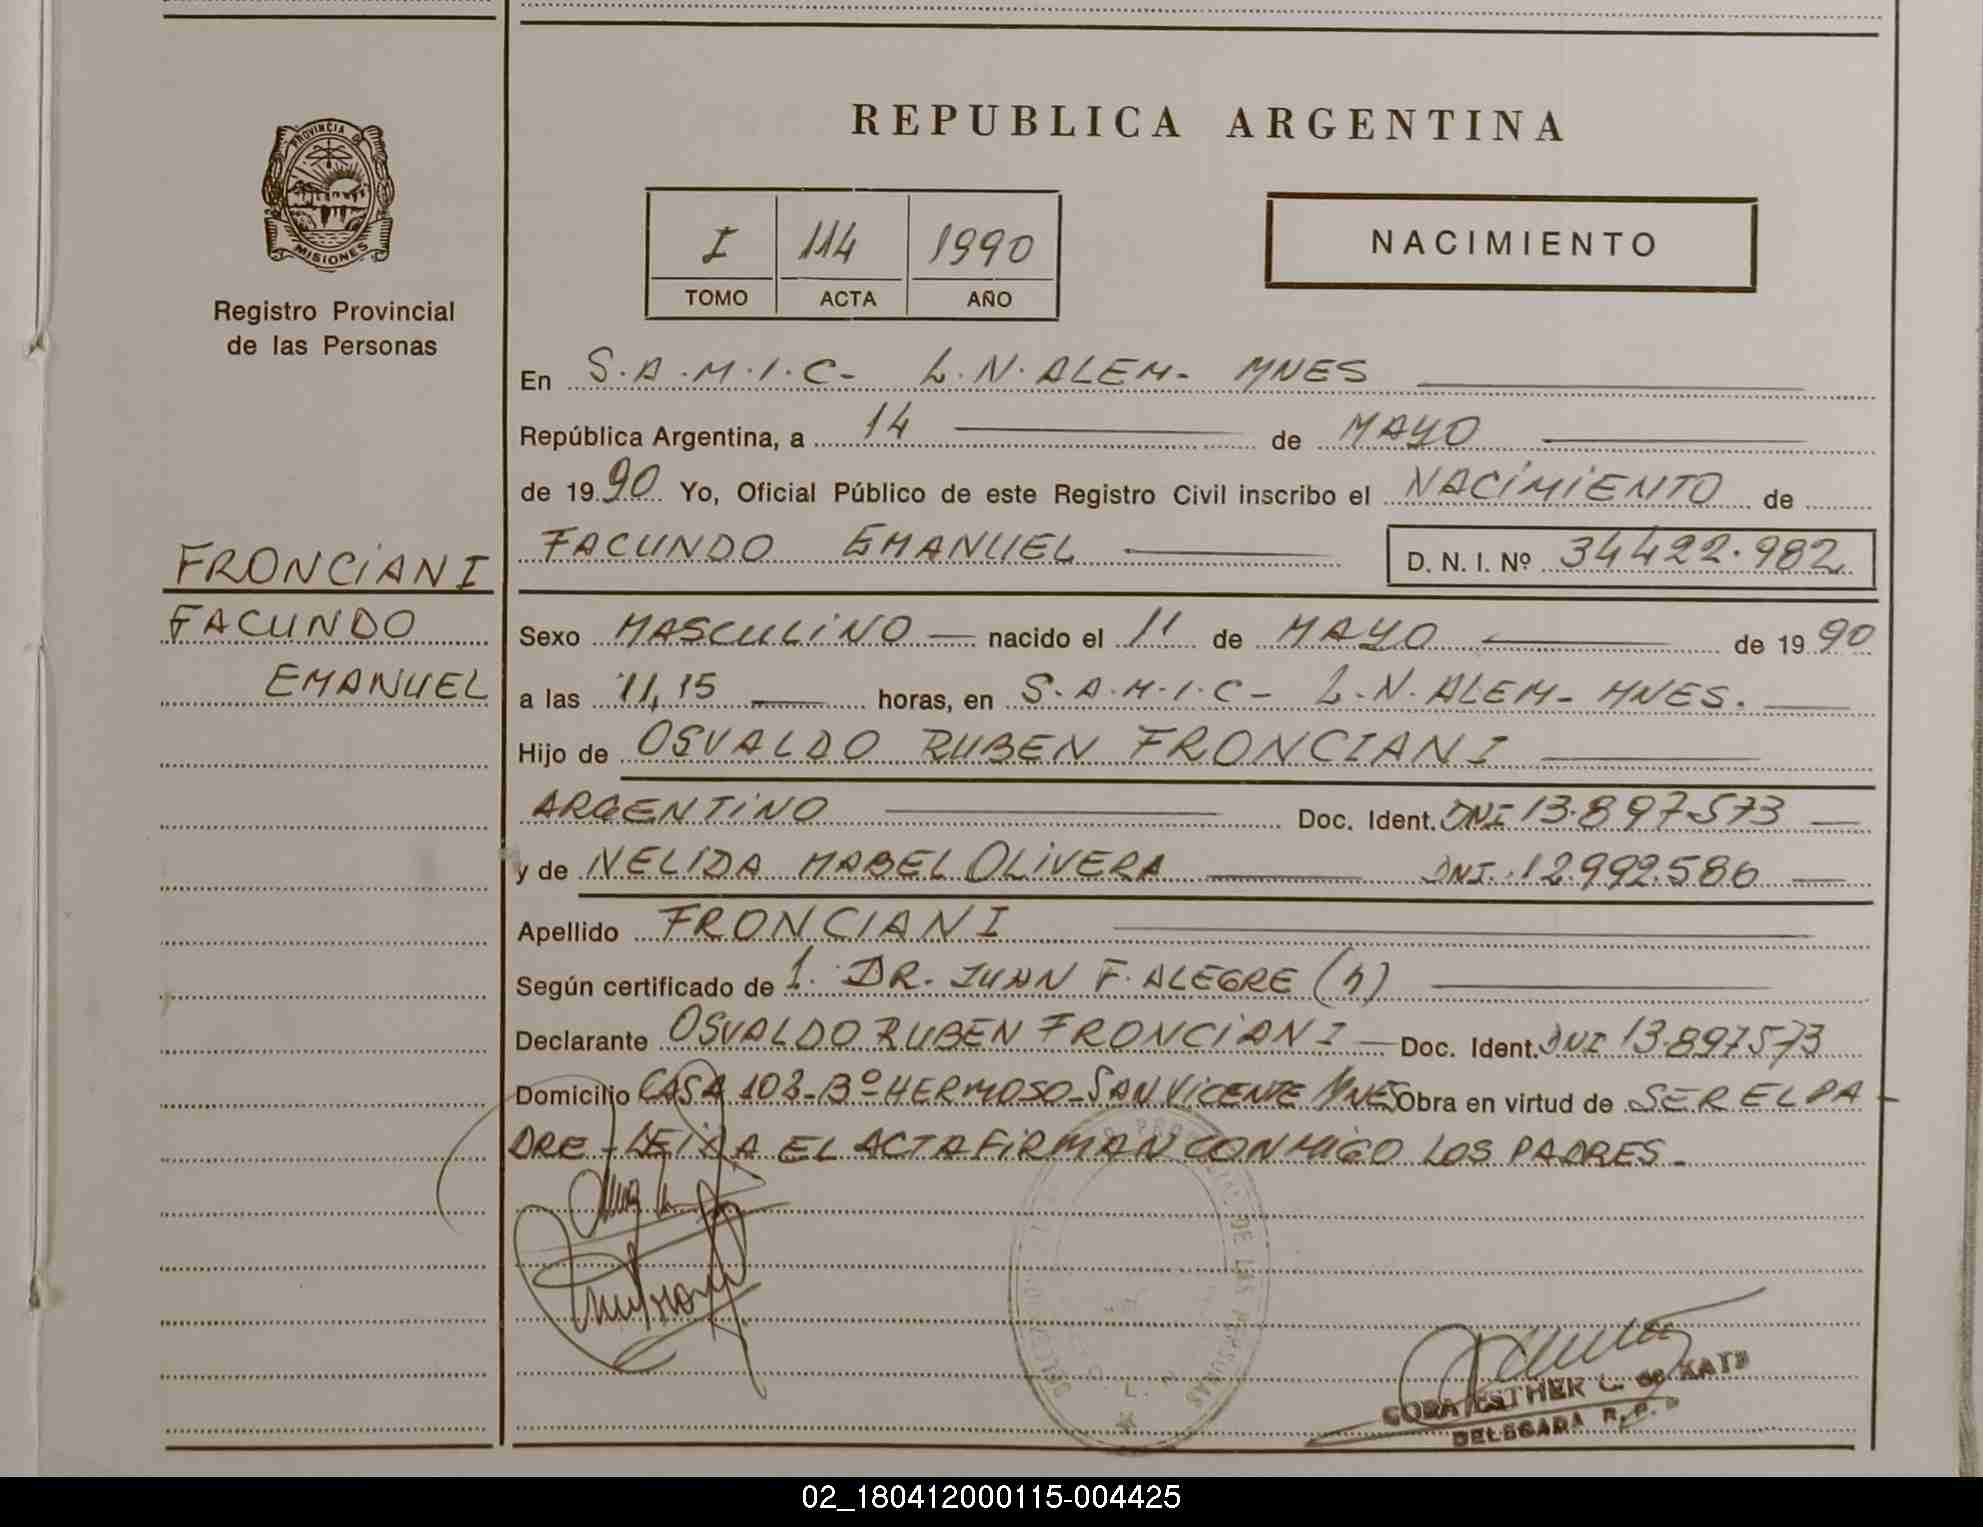 REPUBLICA ARGENTINA
PROVINCIA DE
MISIONES
Registro Provincial
de las Personas
I 114 1990
TOMO ACTA AÑO
NACIMIENTO
En S.A.M.I.C- L.N.ALEM- MNES
República Argentina, a 14 de MAYO
de 1990 Yo, Oficial Público de este Registro Civil inscribo el NACIMIENTO de
FACUNDO EMANUEL D. N. I. Nº 34422.982
FRONCIANI
FACUNDO
EMANUEL
Sexo MASCULINO — nacido el 11 de MAYO de 1990
a las 11,15 horas, en S.A.M.I.C- L.N.ALEM- MNES.
Hijo de OSVALDO RUBEN FRONCIANI
ARGENTINO Doc. Ident. DNI 13.897.573
y de NELIDA MABEL OLIVERA DNI. 12.992.586
Apellido FRONCIANI
Según certificado de 1. DR. JUAN F. ALEGRE (h)
Declarante OSVALDO RUBEN FRONCIANI — Doc. Ident. DNI 13.897573
Domicilio CASA 108-Bº HERMOSO-SAN VICENTE MNES Obra en virtud de SER EL PA-
DRE - LEIDA EL ACTA FIRMAN CONMIGO LOS PADRES.
DE LAS PERSONAS
CORA ESTHER C. de KATZ
DELEGADA R. P.
02_180412000115-004425